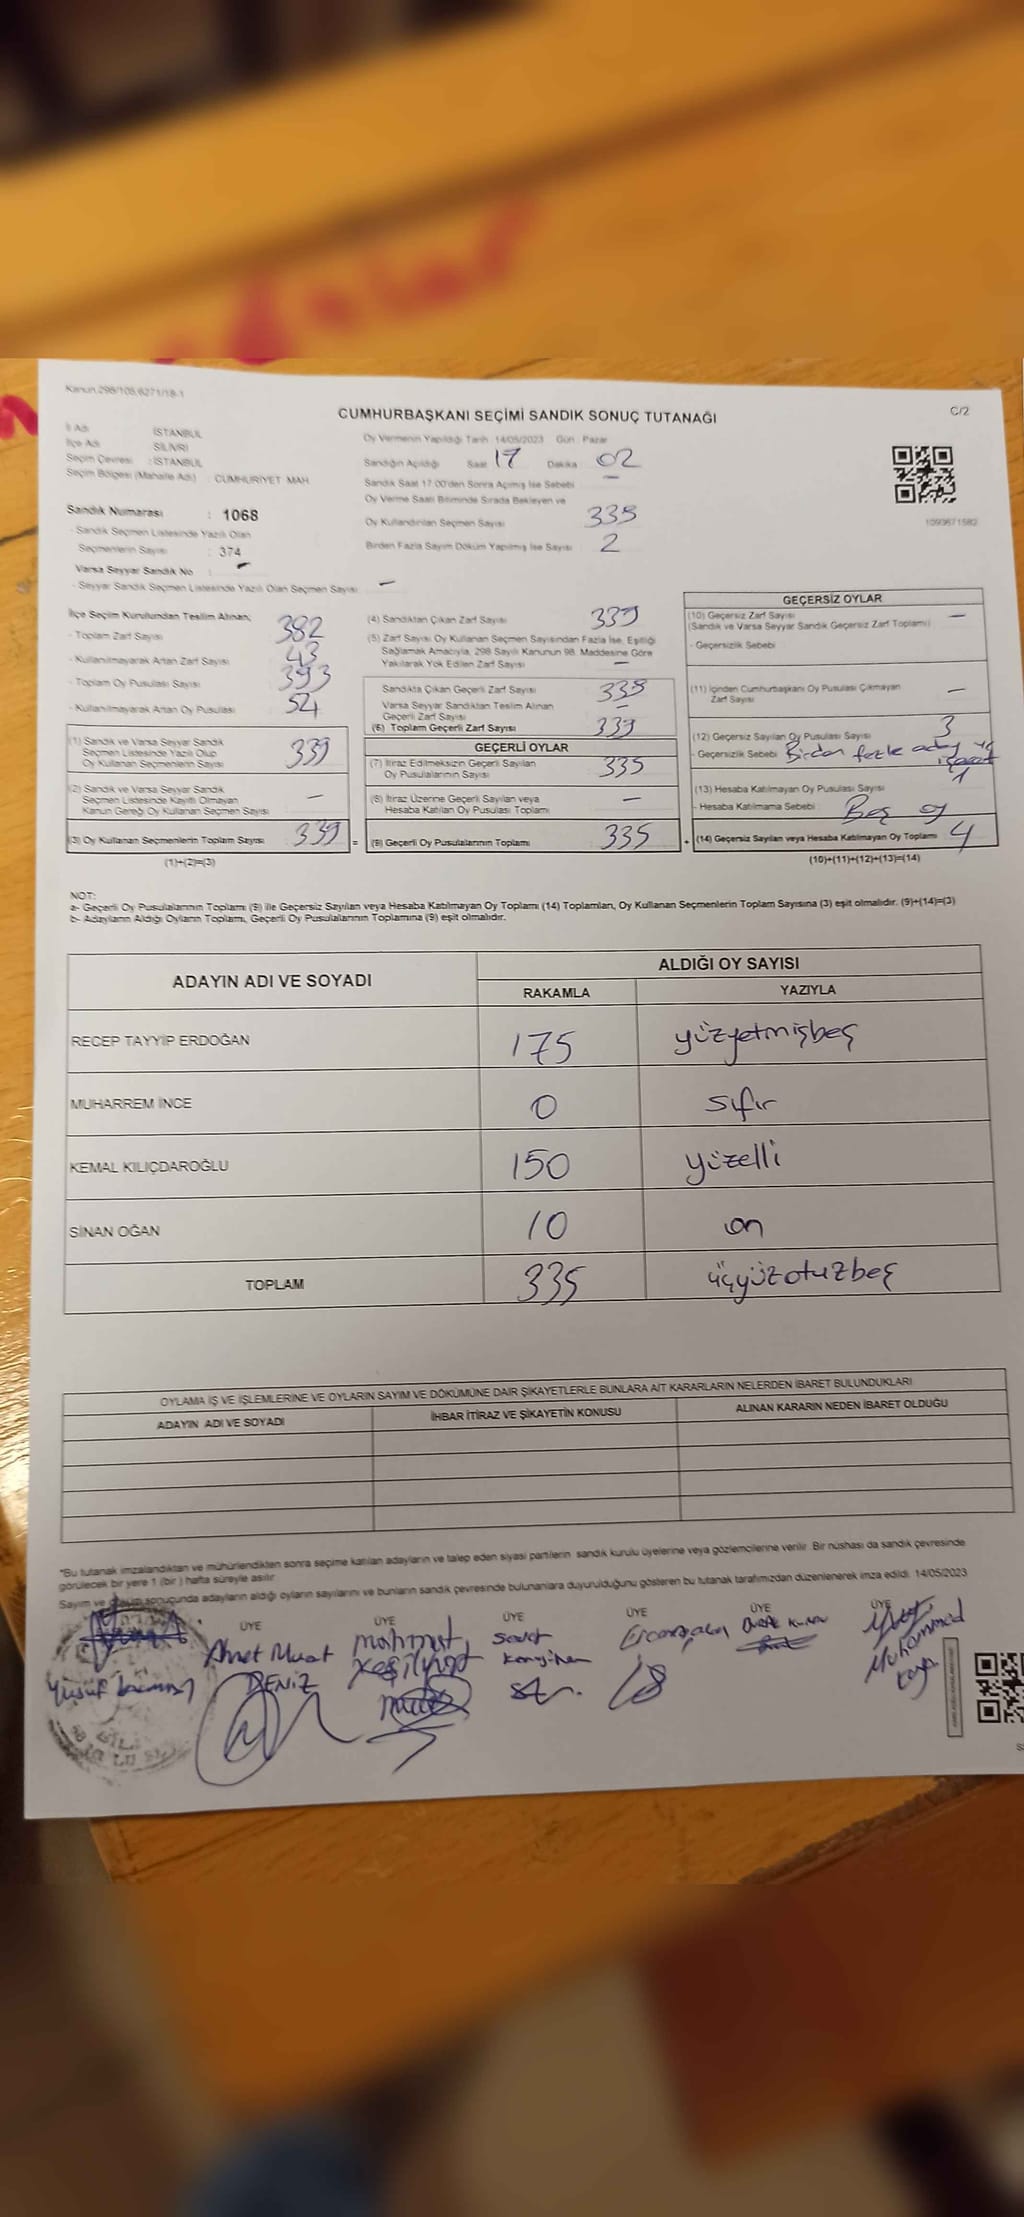 Kanun 298/105,6271/18-1
CUMHURBAŞKANI SEÇİMİ SANDIK SONUÇ TUTANAĞI
C/2
İl Adı : İSTANBUL
İlçe Adı : SİLİVRİ
Seçim Çevresi : İSTANBUL
Seçim Bölgesi (Mahalle Adı) : CUMHURİYET MAH.
Sandık Numarası : 1068
- Sandık Seçmen Listesinde Yazılı Olan
Seçmenlerin Sayısı : 374
Varsa Seyyar Sandık No : -
- Seyyar Sandık Seçmen Listesinde Yazılı Olan Seçmen Sayısı : -
Oy Vermenin Yapıldığı Tarih 14/05/2023 Gün : Pazar
Sandığın Açıldığı Saat 17 Dakika 02
Sandık Saat 17.00'den Sonra Açılmış İse Sebebi -
Oy Verme Saati Bitiminde Sırada Bekleyen ve
Oy Kullandırılan Seçmen Sayısı 335
Birden Fazla Sayım Döküm Yapılmış İse Sayısı : 2
1093671582
İlçe Seçim Kurulundan Teslim Alınan;
- Toplam Zarf Sayısı 382
- Kullanılmayarak Artan Zarf Sayısı 43
- Toplam Oy Pusulası Sayısı 393
- Kullanılmayarak Artan Oy Pusulası 54
(1) Sandık ve Varsa Seyyar Sandık
Seçmen Listesinde Yazılı Olup
Oy Kullanan Seçmenlerin Sayısı 339
(2) Sandık ve Varsa Seyyar Sandık
Seçmen Listesinde Kayıtlı Olmayan
Kanun Gereği Oy Kullanan Seçmen Sayısı -
(3) Oy Kullanan Seçmenlerin Toplam Sayısı 339 =
(1)+(2)=(3)
(4) Sandıktan Çıkan Zarf Sayısı 339
(5) Zarf Sayısı Oy Kullanan Seçmen Sayısından Fazla İse, Eşitliği
Sağlamak Amacıyla, 298 Sayılı Kanunun 98. Maddesine Göre
Yakılarak Yok Edilen Zarf Sayısı -
Sandıkta Çıkan Geçerli Zarf Sayısı 339
Varsa Seyyar Sandıktan Teslim Alınan
Geçerli Zarf Sayısı -
(6) Toplam Geçerli Zarf Sayısı 339
GEÇERLİ OYLAR
(7) İtiraz Edilmeksizin Geçerli Sayılan
Oy Pusulalarının Sayısı 335
(8) İtiraz Üzerine Geçerli Sayılan veya
Hesaba Katılan Oy Pusulası Toplamı -
(9) Geçerli Oy Pusulalarının Toplamı 335 +
GEÇERSİZ OYLAR
(10) Geçersiz Zarf Sayısı -
(Sandık ve Varsa Seyyar Sandık Geçersiz Zarf Toplamı)
- Geçersizlik Sebebi
(11) İçinden Cumhurbaşkanı Oy Pusulası Çıkmayan
Zarf Sayısı -
(12) Geçersiz Sayılan Oy Pusulası Sayısı 3
- Geçersizlik Sebebi Birden fazla aday
işaret
(13) Hesaba Katılmayan Oy Pusulası Sayısı 1
- Hesaba Katılmama Sebebi Boş oy
(14) Geçersiz Sayılan veya Hesaba Katılmayan Oy Toplamı 4
(10)+(11)+(12)+(13)=(14)
NOT:
a- Geçerli Oy Pusulalarının Toplamı (9) ile Geçersiz Sayılan veya Hesaba Katılmayan Oy Toplamı (14) Toplamları, Oy Kullanan Seçmenlerin Toplam Sayısına (3) eşit olmalıdır. (9)+(14)=(3)
b- Adayların Aldığı Oyların Toplamı, Geçerli Oy Pusulalarının Toplamına (9) eşit olmalıdır.
ADAYIN ADI VE SOYADI
ALDIĞI OY SAYISI
RAKAMLA YAZIYLA
RECEP TAYYİP ERDOĞAN 175 yüzyetmişbeş
MUHARREM İNCE 0 sıfır
KEMAL KILIÇDAROĞLU 150 yüzelli
SİNAN OĞAN 10 on
TOPLAM 335 üçyüzotuzbeş
OYLAMA İŞ VE İŞLEMLERİNE VE OYLARIN SAYIM VE DÖKÜMÜNE DAİR ŞİKAYETLERLE BUNLARA AİT KARARLARIN NELERDEN İBARET BULUNDUKLARI
ADAYIN ADI VE SOYADI İHBAR İTİRAZ VE ŞİKAYETİN KONUSU ALINAN KARARIN NEDEN İBARET OLDUĞU
*Bu tutanak imzalandıktan ve mühürlendikten sonra seçime katılan adayların ve talep eden siyasi partilerin sandık kurulu üyelerine veya gözlemcilerine verilir. Bir nüshası da sandık çevresinde
görülecek bir yere 1 (bir) hafta süreyle asılır.
Sayım ve döküm sonucunda adayların aldığı oyların sayılarını ve bunların sandık çevresinde bulunanlara duyurulduğunu gösteren bu tutanak tarafımızdan düzenlenerek imza edildi. 14/05/2023
ÜYE ÜYE ÜYE ÜYE ÜYE ÜYE
Yusuf
Ahmet Murat
DENİZ
mahmut
yeşilyurt
Muhammed
kaya